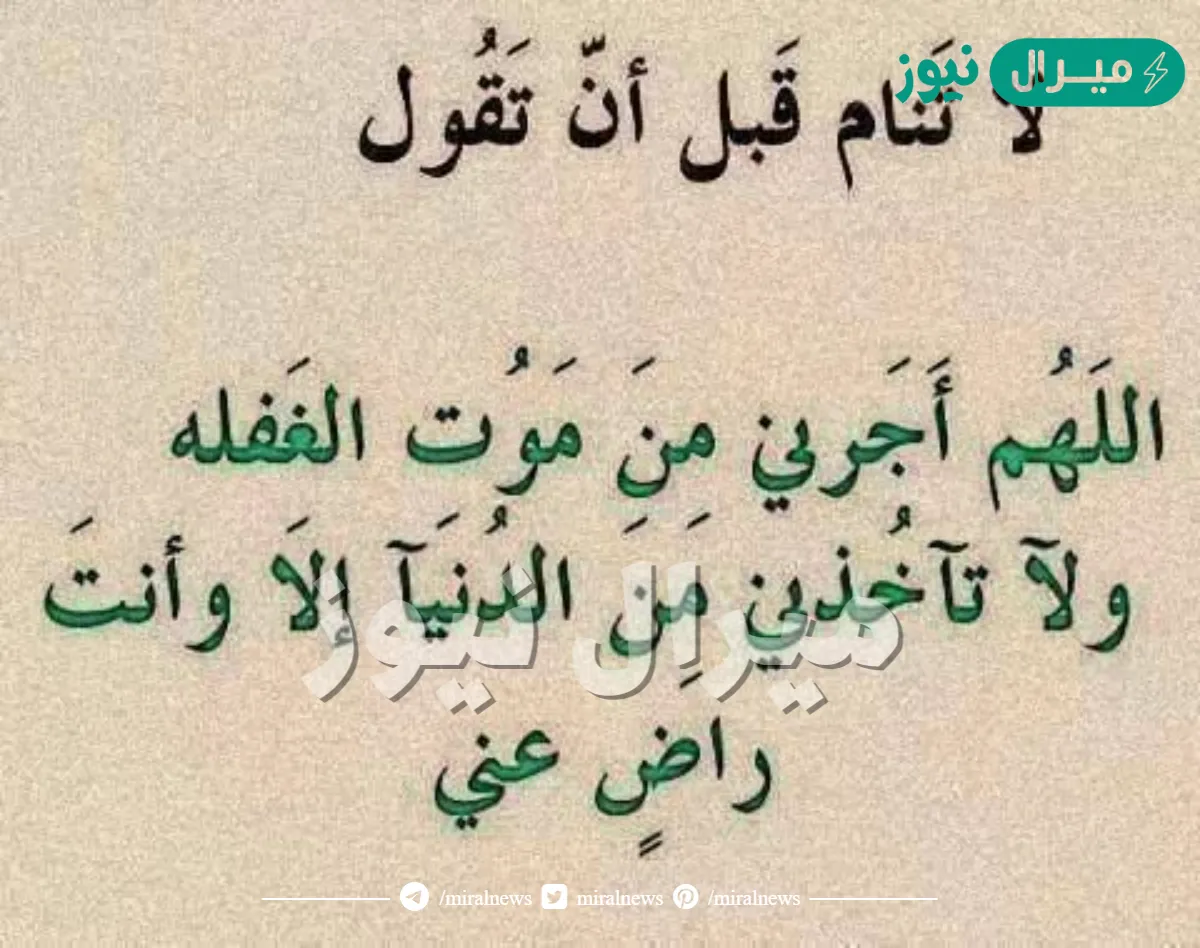 ميرال نيوز
لا تَنام قَبل أنّ تَقُول
اللَهُم أَجَرني مِنَ مَوُت الغَفله
ولآ تآخُذني مَِنَ الدُنيَآ إلاَ وأنتَ
ميرال نيوز
راضٍ عني
/miralnews miralnews /miralnews